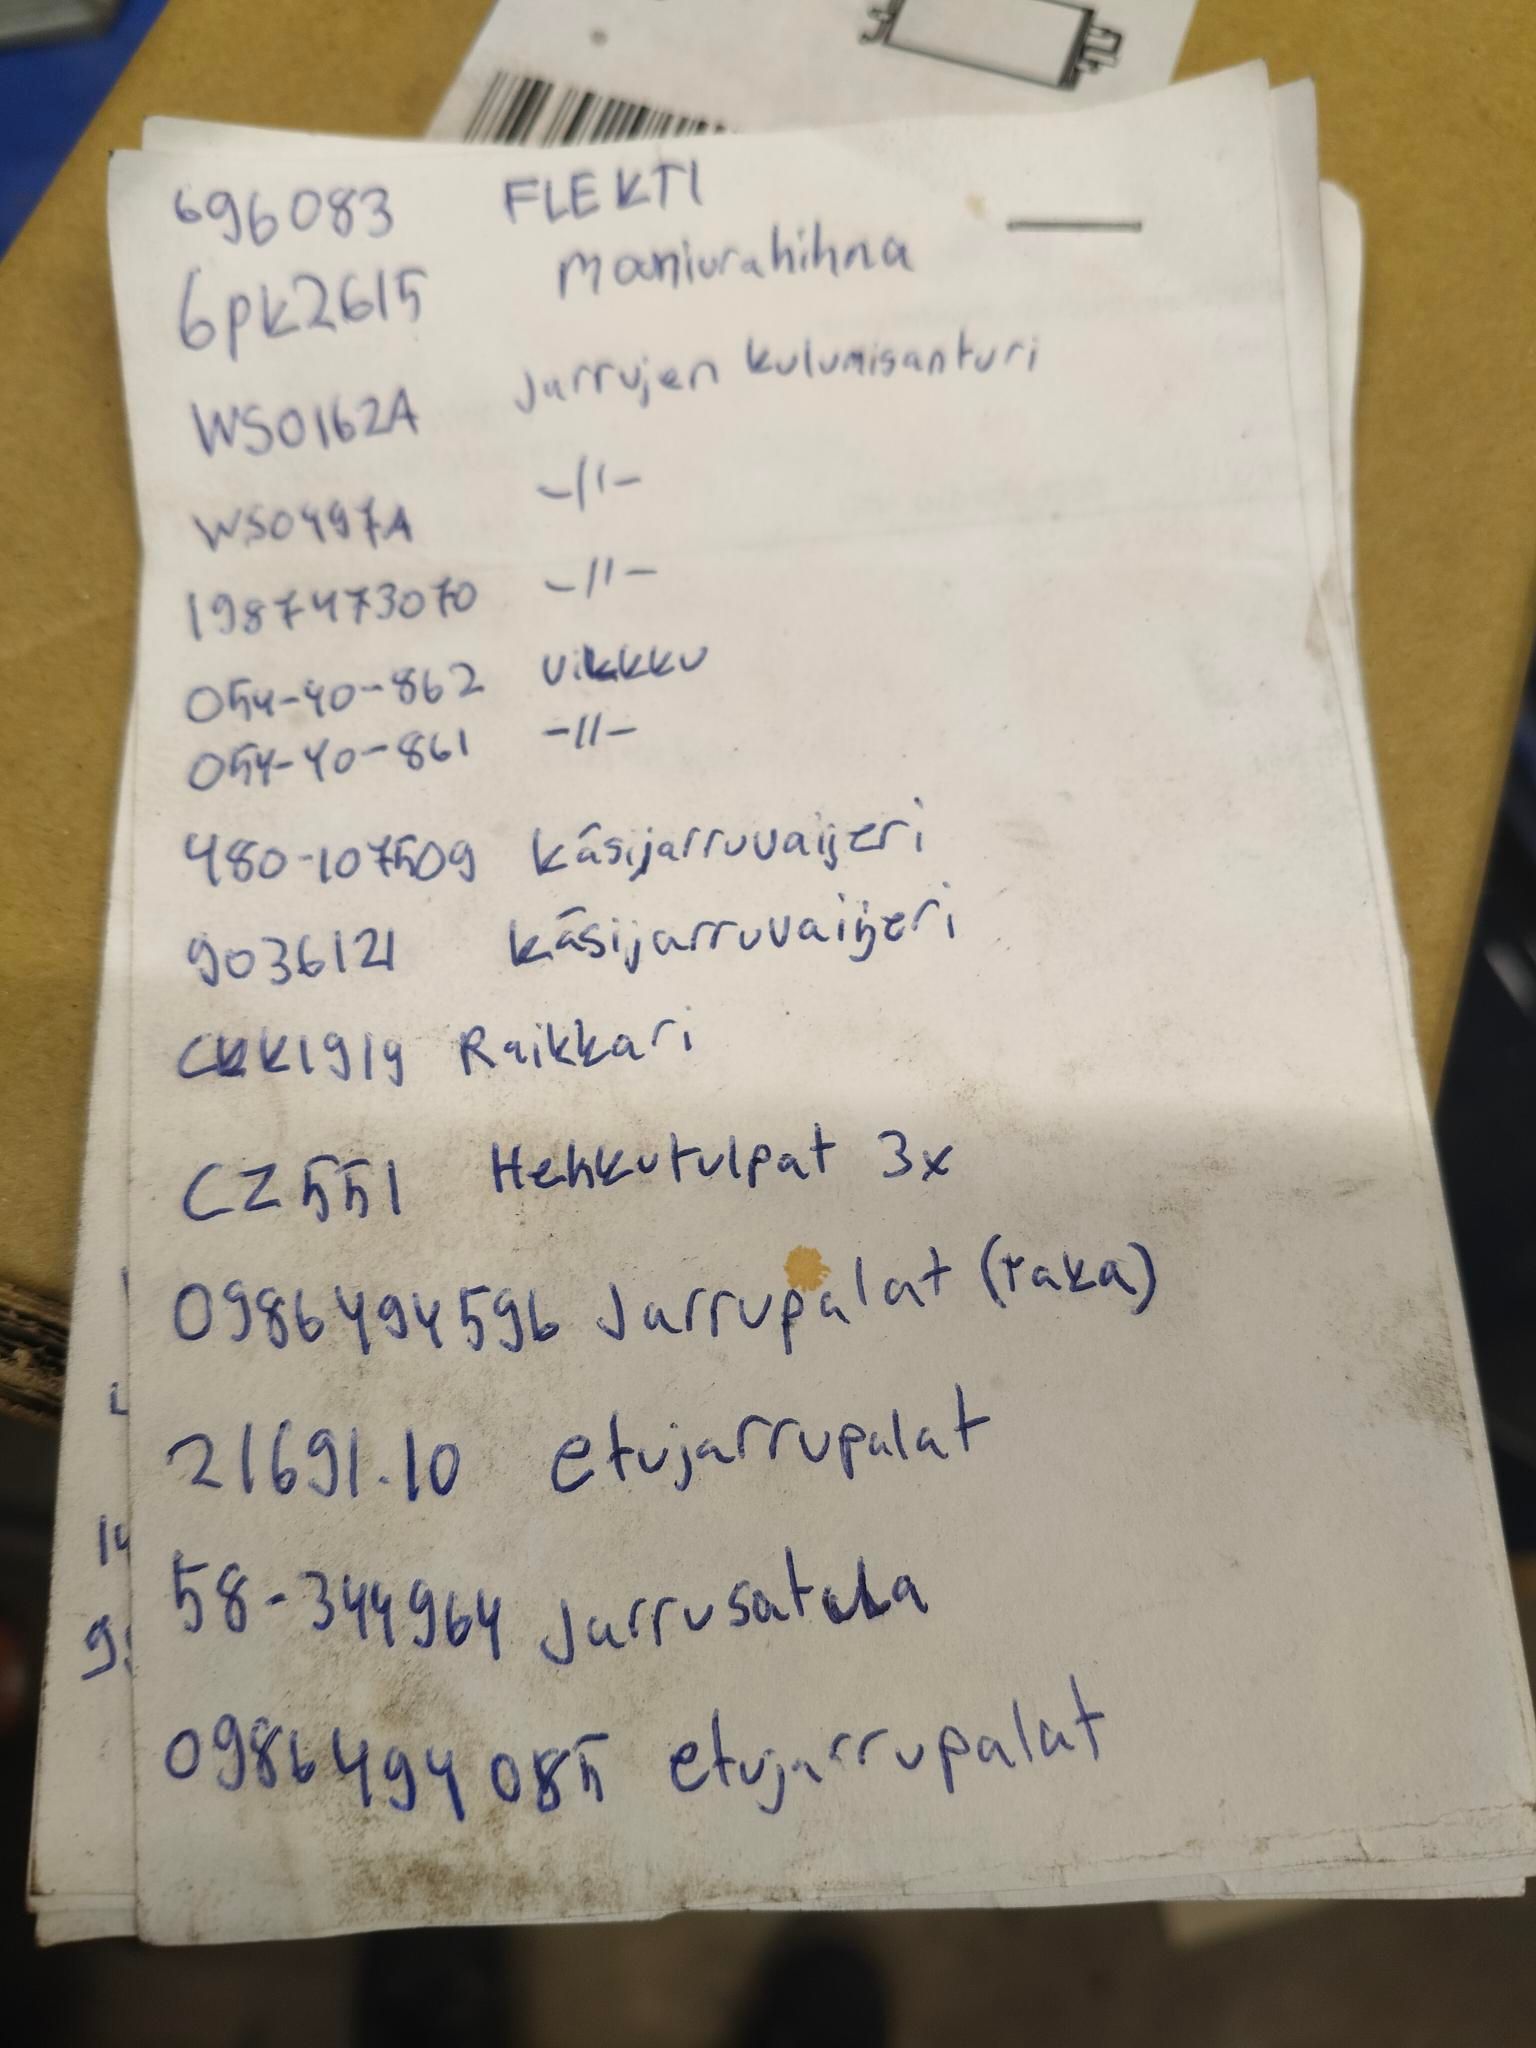 696083 FLEKTI
6pk2615 Moniurahihna
WS0162A Jarrujen kulumisanturi
WS0497A -//-
1987473070 -//-
054-40-862 Vikkku
054-40-861 -//-
480-107509 käsijarruvaijeri
9036121 käsijarruvaijeri
CKK1919 Raikkari
CZ551 Hehkutulpat 3x
0986494596 Jarrupalat (taka)
21691.10 etujarrupalat
58-344964 Jarrusatula
0986494085 etujarrupalat